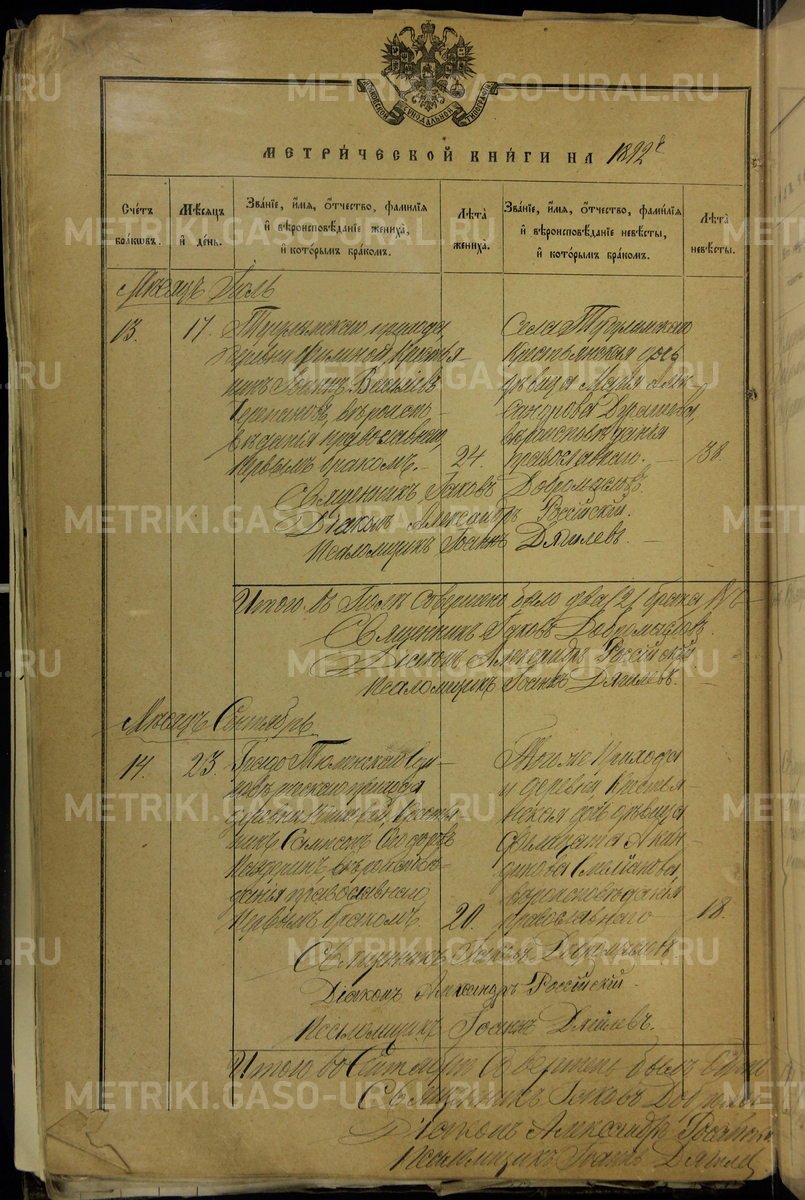 МОСКОВСКОЙ СѴНОДАЛЬНОЙ ТИПОГРАФІИ
МЕТРИ́ЧЕСКОЙ КНИ́ГИ НА 1892 г
Счётъ бра́ковъ.
Мѣ́сяцъ и де́нь.
Зва́ніе, и́мя, о́тчество, фами́лія и вѣроисповѣ́даніе жениха̀, и кото́рымъ бра́комъ.
Лѣта̀ жениха̀.
Зва́ніе, и́мя, о́тчество, фами́лія и вѣроисповѣ́даніе невѣ́сты, и кото́рымъ бра́комъ.
Лѣта̀ невѣ́сты.
Мѣсяцъ Іюль
13. 17.
Тугулымскаго прихода,
деревни крестья-
нинъ Іоаннъ Васильевъ
вѣроиспо-
вѣданія православнаго,
первымъ бракомъ.
24.
Села Тугулымскаго
Крестьянская дочь
дѣвица Марія Алек-
сандрова
вѣроисповѣданія
православнаго.
38.
Священникъ Іаковъ Добромысловъ
Діаконъ Александръ Россійскій.
Псаломщикъ Іоаннъ Дягилевъ.
Итого въ Іюлѣ совершено было два /2/ брака
Священникъ Іаковъ Добромысловъ
Діаконъ Александръ Россійскій
Псаломщикъ Іоаннъ Дягилевъ.
Мѣсяцъ Сентябрь
14. 23.
Градо Тюменской Еди-
новѣрческаго прихода
деревни крестья-
нинъ Самсонъ
вѣроисповѣ-
данія православнаго
первымъ бракомъ
20.
Того же прихода
и деревни крестья-
нская дочь дѣвица
вѣроисповѣданія
православнаго
18.
Священникъ Іаковъ Добромысловъ
Діаконъ Александръ Россійскій.
Псаломщикъ Іоаннъ Дягилевъ.
Итого въ Сентябрѣ совершенъ былъ
Священникъ Іаковъ
Діаконъ Александръ
Псаломщикъ Іоаннъ
METRIKI.GASO-URAL.RU